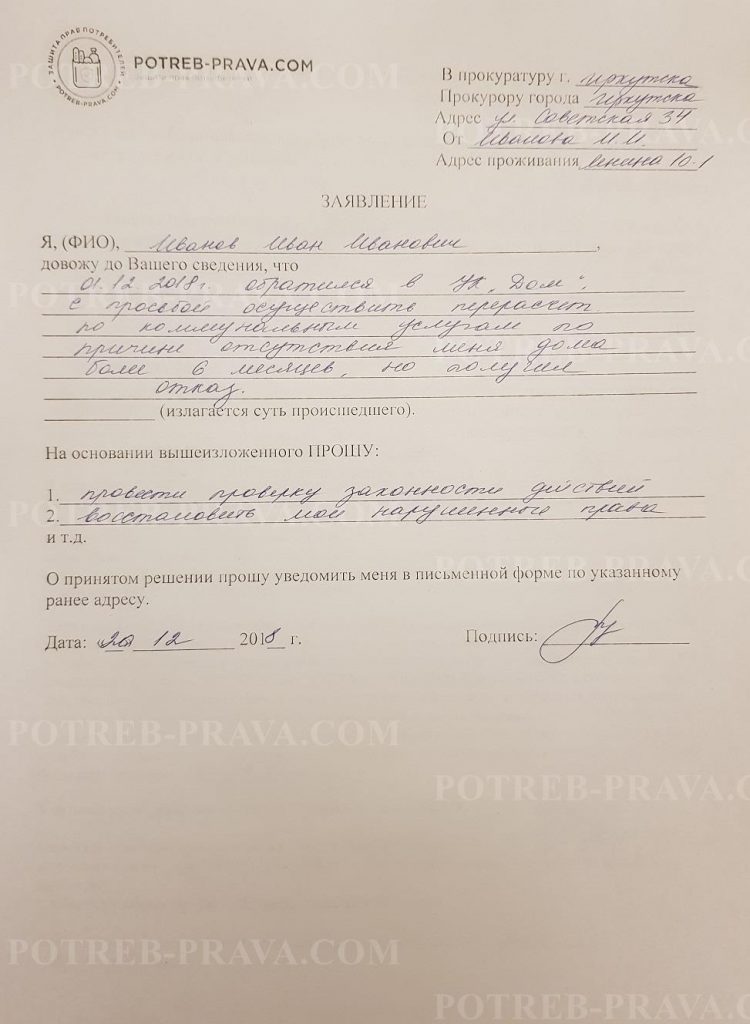 ЗАЩИТА ПРАВ ПОТРЕБИТЕЛЕЙ
POTREB-PRAVA.COM
POTREB-PRAVA.COM
В прокуратуру г. Иркутска
Прокурору города Иркутска
Адрес ул. Советская 34
От Иванова И.И.
Адрес проживания Ленина 10-1
ЗАЯВЛЕНИЕ
Я, (ФИО), Иванов Иван Иванович,
довожу до Вашего сведения, что
01.12.2018г. обратился в УК „Дом",
с просьбой осуществить перерасчет
по коммунальным услугам по
причине отсутствия меня дома
более 6 месяцев, но получил
отказ.
(излагается суть происшедшего).
На основании вышеизложенного ПРОШУ:
1. провести проверку законности действий
2. восстановить мои нарушенные права
и т.д.
О принятом решении прошу уведомить меня в письменной форме по указанному
ранее адресу.
Дата: «20» 12 2018 г. Подпись:
POTREB-PRAVA.COM
POTREB-PRAVA.CO
POTREB-PRAVA.COM
POTREB-PRAVA.CO